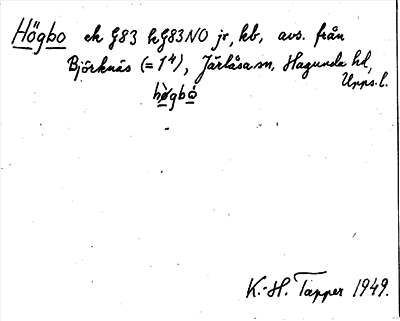 Högbo ek G83 kG83NO jr, kb, avs. från
Björknäs (= 1⁴), Järlåsa sn, Hagunda hd,
Upps. l.
hö̀gbó
K.-H. Tapper 1949.